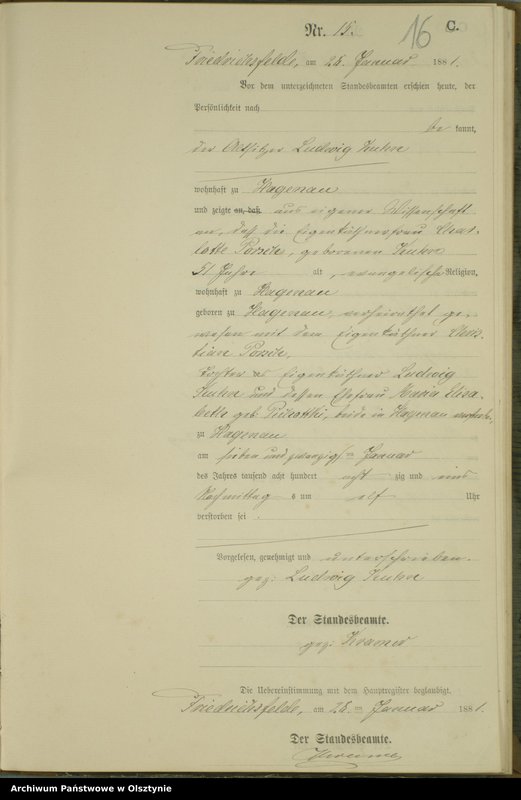 Nr. 15. 16 C.
Friedrichsfelde, am 28. Januar 1881.
Vor dem unterzeichneten Standesbeamten erschien heute, der
Persönlichkeit nach
be kannt,
der Altsitzer Ludwig
wohnhaft zu Hagenau
und zeigte an, daß aus eigener Wissenschaft
an, daß die Eigenthümerfrau Char-
lotte geborenen
51 Jahre alt, evangelische Religion,
wohnhaft zu Hagenau
geboren zu Hagenau, verheirathet ge-
wesen mit dem Eigenthümer Chris-
tian
Tochter des Eigenthümer Ludwig
und dessen Ehefrau Maria Elisa-
beth geb. beide in Hagenau
zu Hagenau
am sieben und zwanzigsten Januar
des Jahres tausend acht hundert acht zig und eins
Nachmittag s um elf Uhr
verstorben sei.
Vorgelesen, genehmigt und unterschrieben.
gez. Ludwig
Der Standesbeamte.
gez. Kramer
Die Uebereinstimmung mit dem Hauptregister beglaubigt.
Friedrichsfelde, am 28. ten Januar 1881.
Der Standesbeamte.
Archiwum Państwowe w Olsztynie